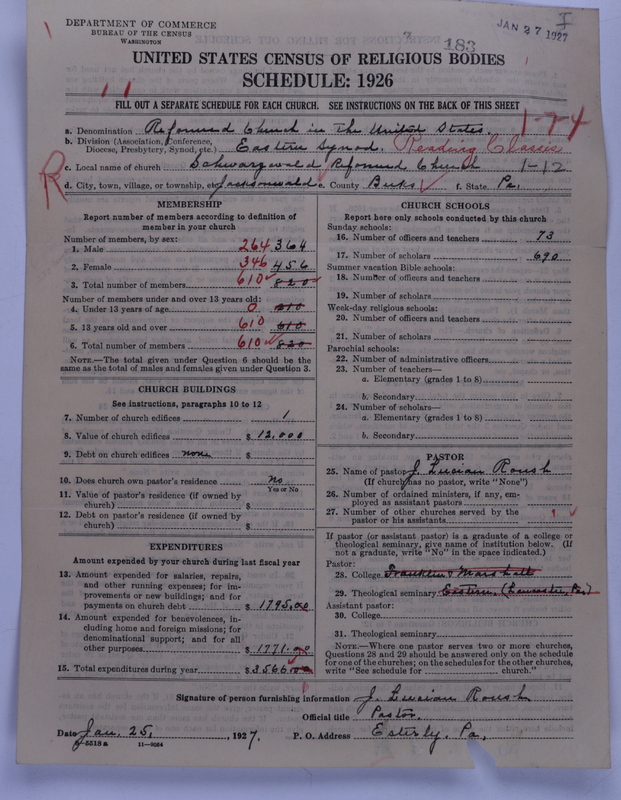 DEPARTMENT OF COMMERCE
BUREAU OF THE CENSUS
WASHINGTON
JAN 27 1927
I
183
UNITED STATES CENSUS OF RELIGIOUS BODIES
SCHEDULE: 1926
FILL OUT A SEPARATE SCHEDULE FOR EACH CHURCH. SEE INSTRUCTIONS ON THE BACK OF THIS SHEET
a. Denomination Reformed Church in The United States. 1-74
b. Division (Association, Conference, Diocese, Presbytery, Synod, etc.) Eastern Synod. Reading Classis
c. Local name of church Schwarzwald Reformed Church 1-12
R
d. City, town, village, or township, etc. Jacksonwald e. County Berks f. State Pa.
MEMBERSHIP
Report number of members according to definition of member in your church
Number of members, by sex:
1. Male 264 364
2. Female 346 456
3. Total number of members 610 820
Number of members under and over 13 years old:
4. Under 13 years of age 0 210
5. 13 years old and over 610 610
6. Total number of members 610 820
NOTE.—The total given under Question 6 should be the same as the total of males and females given under Question 3.
CHURCH BUILDINGS
See instructions, paragraphs 10 to 12
7. Number of church edifices 1
8. Value of church edifices $ 12,000
9. Debt on church edifices none $
10. Does church own pastor's residence No
Yes or No
11. Value of pastor's residence (if owned by church) $
12. Debt on pastor's residence (if owned by church) $
EXPENDITURES
Amount expended by your church during last fiscal year
13. Amount expended for salaries, repairs, and other running expenses; for improvements or new buildings; and for payments on church debt $ 1795.00
14. Amount expended for benevolences, including home and foreign missions; for denominational support; and for all other purposes $ 1771.00
15. Total expenditures during year $ 3566.00
CHURCH SCHOOLS
Report here only schools conducted by this church
Sunday schools:
16. Number of officers and teachers 73
17. Number of scholars 690
Summer vacation Bible schools:
18. Number of officers and teachers
19. Number of scholars
Week-day religious schools:
20. Number of officers and teachers
21. Number of scholars
Parochial schools:
22. Number of administrative officers
23. Number of teachers—
a. Elementary (grades 1 to 8)
b. Secondary
24. Number of scholars—
a. Elementary (grades 1 to 8)
b. Secondary
PASTOR
25. Name of pastor J. Lucian Roush
(If church has no pastor, write "None")
26. Number of ordained ministers, if any, employed as assistant pastors
27. Number of other churches served by the pastor or his assistants 1
If pastor (or assistant pastor) is a graduate of a college or theological seminary, give name of institution below. (If not a graduate, write "No" in the space indicated.)
Pastor:
28. College Franklin & Marshall
29. Theological seminary Eastern, (Lancaster, Pa.)
Assistant pastor:
30. College
31. Theological seminary
NOTE.—Where one pastor serves two or more churches, Questions 28 and 29 should be answered only on the schedule for one of the churches; on the schedules for the other churches, write "See schedule for church."
Signature of person furnishing information J. Lucian Roush
Official title Pastor.
Date Jan. 25, , 1927. P. O. Address Esterly, Pa.
8-5518a 11-9054